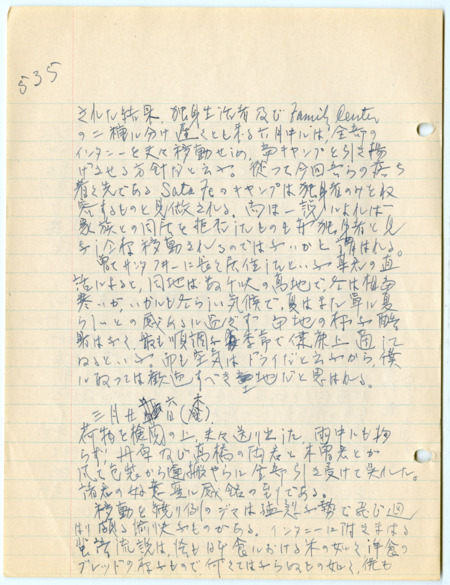 535
された結果、独身生活者及びFamily Center
の二種に分け遅くとも来る六月中には、全部の
インタニーを夫々移動せしめ、当キャンプを引き揚
げさせる方針だと云ふ。従つて今回吾らの落ち
着く先であるSanta Feのキャンプは独身者のみを収
容するものと見做される。尚ほ一説によれば
家族との同居を拒否したものも亦独身者と
移動されるのではないかと謂はれる。
曽てサンタフェーに長く居住したといふ
話によると、同地は数千呎の高地で、冬は相当
寒いが、いかにも冬らしい気候で、夏はまた単に夏
らしいとの感がするに過ぎず 当地の様な酷
暑はなく、最も順調な季節で保健上適して
ゐるといふ。而も空気はドライだと云ふから、僕
に取つては歓迎すべき聖地だと思はれる。
三月廿六(木)
荷物を検閲の上、夫々送り出した。雨中にも拘
らず、丹母及び高橋の両君と木曽君とが
して包装から運搬やらに全部引き受けて呉れた。
諸君の好意並に感銘の至りである。
移動を繞り例のデマは猛烈な勢で飛び廻
はり頗る愉快なものである。インタニーに附きまとふ
蜚語流説は、恰も日本食に於ける米の如く、洋食の
ブレッドの様なもので、何くてはならぬもの如く、